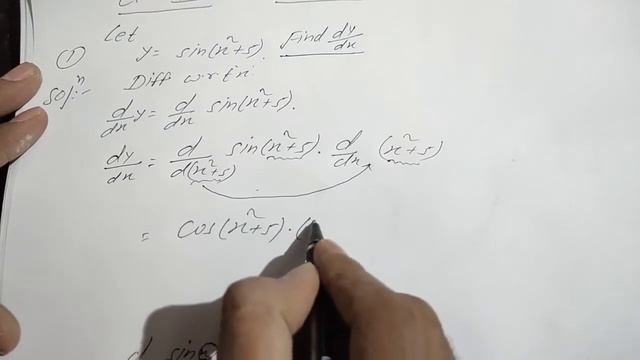 Let
① y = sin(x²+5). Find dy/dx
Solⁿ:- Diff w.r.t 'x'
d/dx y = d/dx sin(x²+5).
dy/dx = d/d(x²+5) sin(x²+5) . d/dx (x²+5)
= Cos(x²+5) . (
d sin